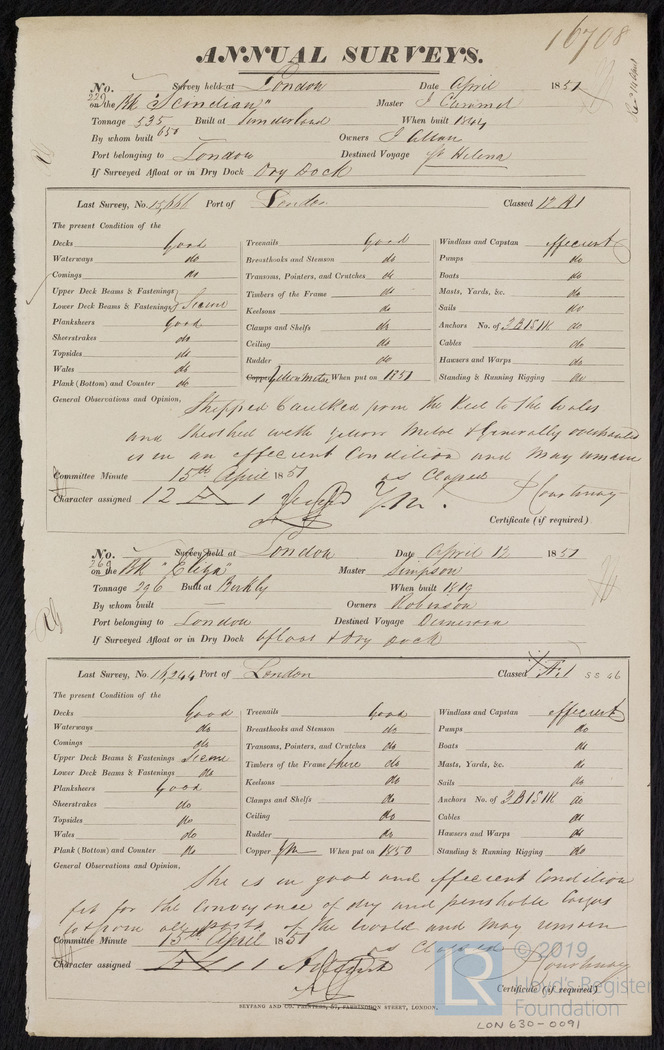 16708
ANNUAL SURVEYS.
No. Survey held at London Date April 1851
229
on the Bk "Scindian" Master J Cammel
Tonnage 535 Built at Sunderland When built 1844
650
By whom built Owners J Allan
Port belonging to London Destined Voyage St Helena
If Surveyed Afloat or in Dry Dock Dry Dock
Last Survey, No. 15,666 Port of London Classed 12 A1
The present Condition of the
Decks Good Treenails Good Windlass and Capstan effecient
Waterways do Breasthooks and Stemson do Pumps do
Comings do Transoms, Pointers, and Crutches do Boats do
Upper Deck Beams & Fastenings Timbers of the Frame do Masts, Yards, &c. do
Lower Deck Beams & Fastenings Secure Keelsons do Sails do
Planksheers Good Clamps and Shelfs do Anchors No. of 3 B 1 S 1 K do
Sheerstrakes do Ceiling do Cables do
Topsides do Rudder do Hawsers and Warps do
Wales do Copper Yellow Metal When put on 1851 Standing & Running Rigging do
Plank (Bottom) and Counter do
General Observations and Opinion, Stripped Caulked from the Keel to the Wales
and Sheathed with Yellow Metal & Generally overhauled
is in an effecient Condition and may remain
as Classed
Committee Minute 15th April 1851
Courtenay
Character assigned 12 A 1 Y.M.
Certificate (if required)
No. Survey held at London Date April 12 1851
269
on the Bk "Eliza" Master Simpson
Tonnage 296 Built at Berkly When built 1819
By whom built Owners Robinson
Port belonging to London Destined Voyage Demerara
If Surveyed Afloat or in Dry Dock afloat & Dry Dock
Last Survey, No. 16,244 Port of London Classed Æ 1 SS 46
The present Condition of the
Decks Good Treenails Good Windlass and Capstan effecient
Waterways do Breasthooks and Stemson do Pumps do
Comings do Transoms, Pointers, and Crutches do Boats do
Upper Deck Beams & Fastenings Secure Timbers of the Frame where do Masts, Yards, &c. do
Lower Deck Beams & Fastenings do Keelsons do Sails do
Planksheers Good Clamps and Shelfs do Anchors No. of 3 B 1 S 1 K do
Sheerstrakes do Ceiling do Cables do
Topsides do Rudder do Hawsers and Warps do
Wales do Copper YM When put on 1850 Standing & Running Rigging do
Plank (Bottom) and Counter do
General Observations and Opinion,
She is in good and effecient Condition
fit for the conveyance of dry and perishable Cargos
to & from all ports of the World and may remain
as classed
Committee Minute 15th April 1851
Courtenay
Character assigned Æ 1
Certificate (if required)
SEYFANG AND CO. PRINTERS, 57, FARRINGDON STREET, LONDON.
© 2019
LR Lloyd's Register
Foundation
LON 630-0091